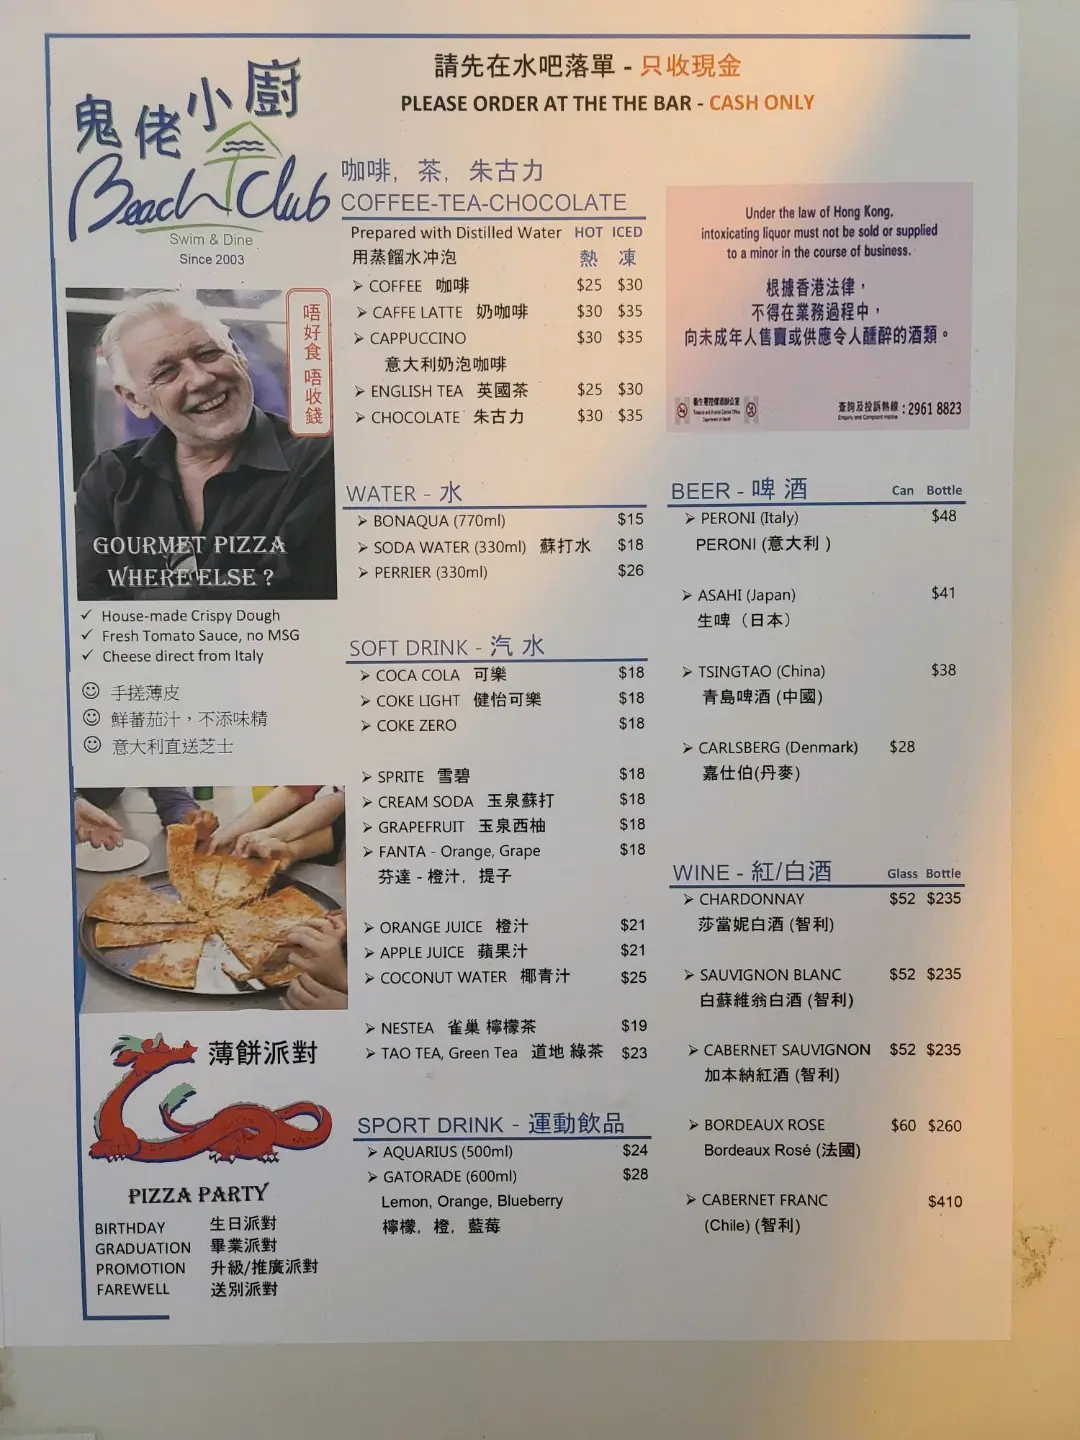 請先在水吧落單 - 只收現金
PLEASE ORDER AT THE THE BAR - CASH ONLY
鬼佬小廚
Beach Club
Swim & Dine
Since 2003
唔好食 唔收錢
GOURMET PIZZA
WHERE ELSE ?
✓ House-made Crispy Dough
✓ Fresh Tomato Sauce, no MSG
✓ Cheese direct from Italy
☺ 手搓薄皮
☺ 鮮蕃茄汁，不添味精
☺ 意大利直送芝士
薄餅派對
PIZZA PARTY
BIRTHDAY 生日派對
GRADUATION 畢業派對
PROMOTION 升級/推廣派對
FAREWELL 送別派對
咖啡, 茶, 朱古力
COFFEE-TEA-CHOCOLATE
Prepared with Distilled Water HOT ICED
用蒸餾水冲泡 熱 凍
➢ COFFEE 咖啡 $25 $30
➢ CAFFE LATTE 奶咖啡 $30 $35
➢ CAPPUCCINO $30 $35
意大利奶泡咖啡
➢ ENGLISH TEA 英國茶 $25 $30
➢ CHOCOLATE 朱古力 $30 $35
WATER - 水
➢ BONAQUA (770ml) $15
➢ SODA WATER (330ml) 蘇打水 $18
➢ PERRIER (330ml) $26
SOFT DRINK - 汽 水
➢ COCA COLA 可樂 $18
➢ COKE LIGHT 健怡可樂 $18
➢ COKE ZERO $18
➢ SPRITE 雪碧 $18
➢ CREAM SODA 玉泉蘇打 $18
➢ GRAPEFRUIT 玉泉西柚 $18
➢ FANTA - Orange, Grape $18
芬達 - 橙汁, 提子
➢ ORANGE JUICE 橙汁 $21
➢ APPLE JUICE 蘋果汁 $21
➢ COCONUT WATER 椰青汁 $25
➢ NESTEA 雀巢 檸檬茶 $19
➢ TAO TEA, Green Tea 道地 綠茶 $23
SPORT DRINK - 運動飲品
➢ AQUARIUS (500ml) $24
➢ GATORADE (600ml) $28
Lemon, Orange, Blueberry
檸檬, 橙, 藍莓
Under the law of Hong Kong,
intoxicating liquor must not be sold or supplied
to a minor in the course of business.
根據香港法律，
不得在業務過程中，
向未成年人售賣或供應令人醺醉的酒類。
衞生署控煙酒辦公室
Tobacco and Alcohol Control Office
Department of Health
查詢及投訴熱線 : 2961 8823
Enquiry and Complaint Hotline
BEER - 啤 酒 Can Bottle
➢ PERONI (Italy) $48
PERONI (意大利 )
➢ ASAHI (Japan) $41
生啤（日本）
➢ TSINGTAO (China) $38
青島啤酒 (中國)
➢ CARLSBERG (Denmark) $28
嘉仕伯(丹麥)
WINE - 紅/白酒 Glass Bottle
➢ CHARDONNAY $52 $235
莎當妮白酒 (智利)
➢ SAUVIGNON BLANC $52 $235
白蘇維翁白酒 (智利)
➢ CABERNET SAUVIGNON $52 $235
加本納紅酒 (智利)
➢ BORDEAUX ROSE $60 $260
Bordeaux Rosé (法國)
➢ CABERNET FRANC $410
(Chile) (智利)